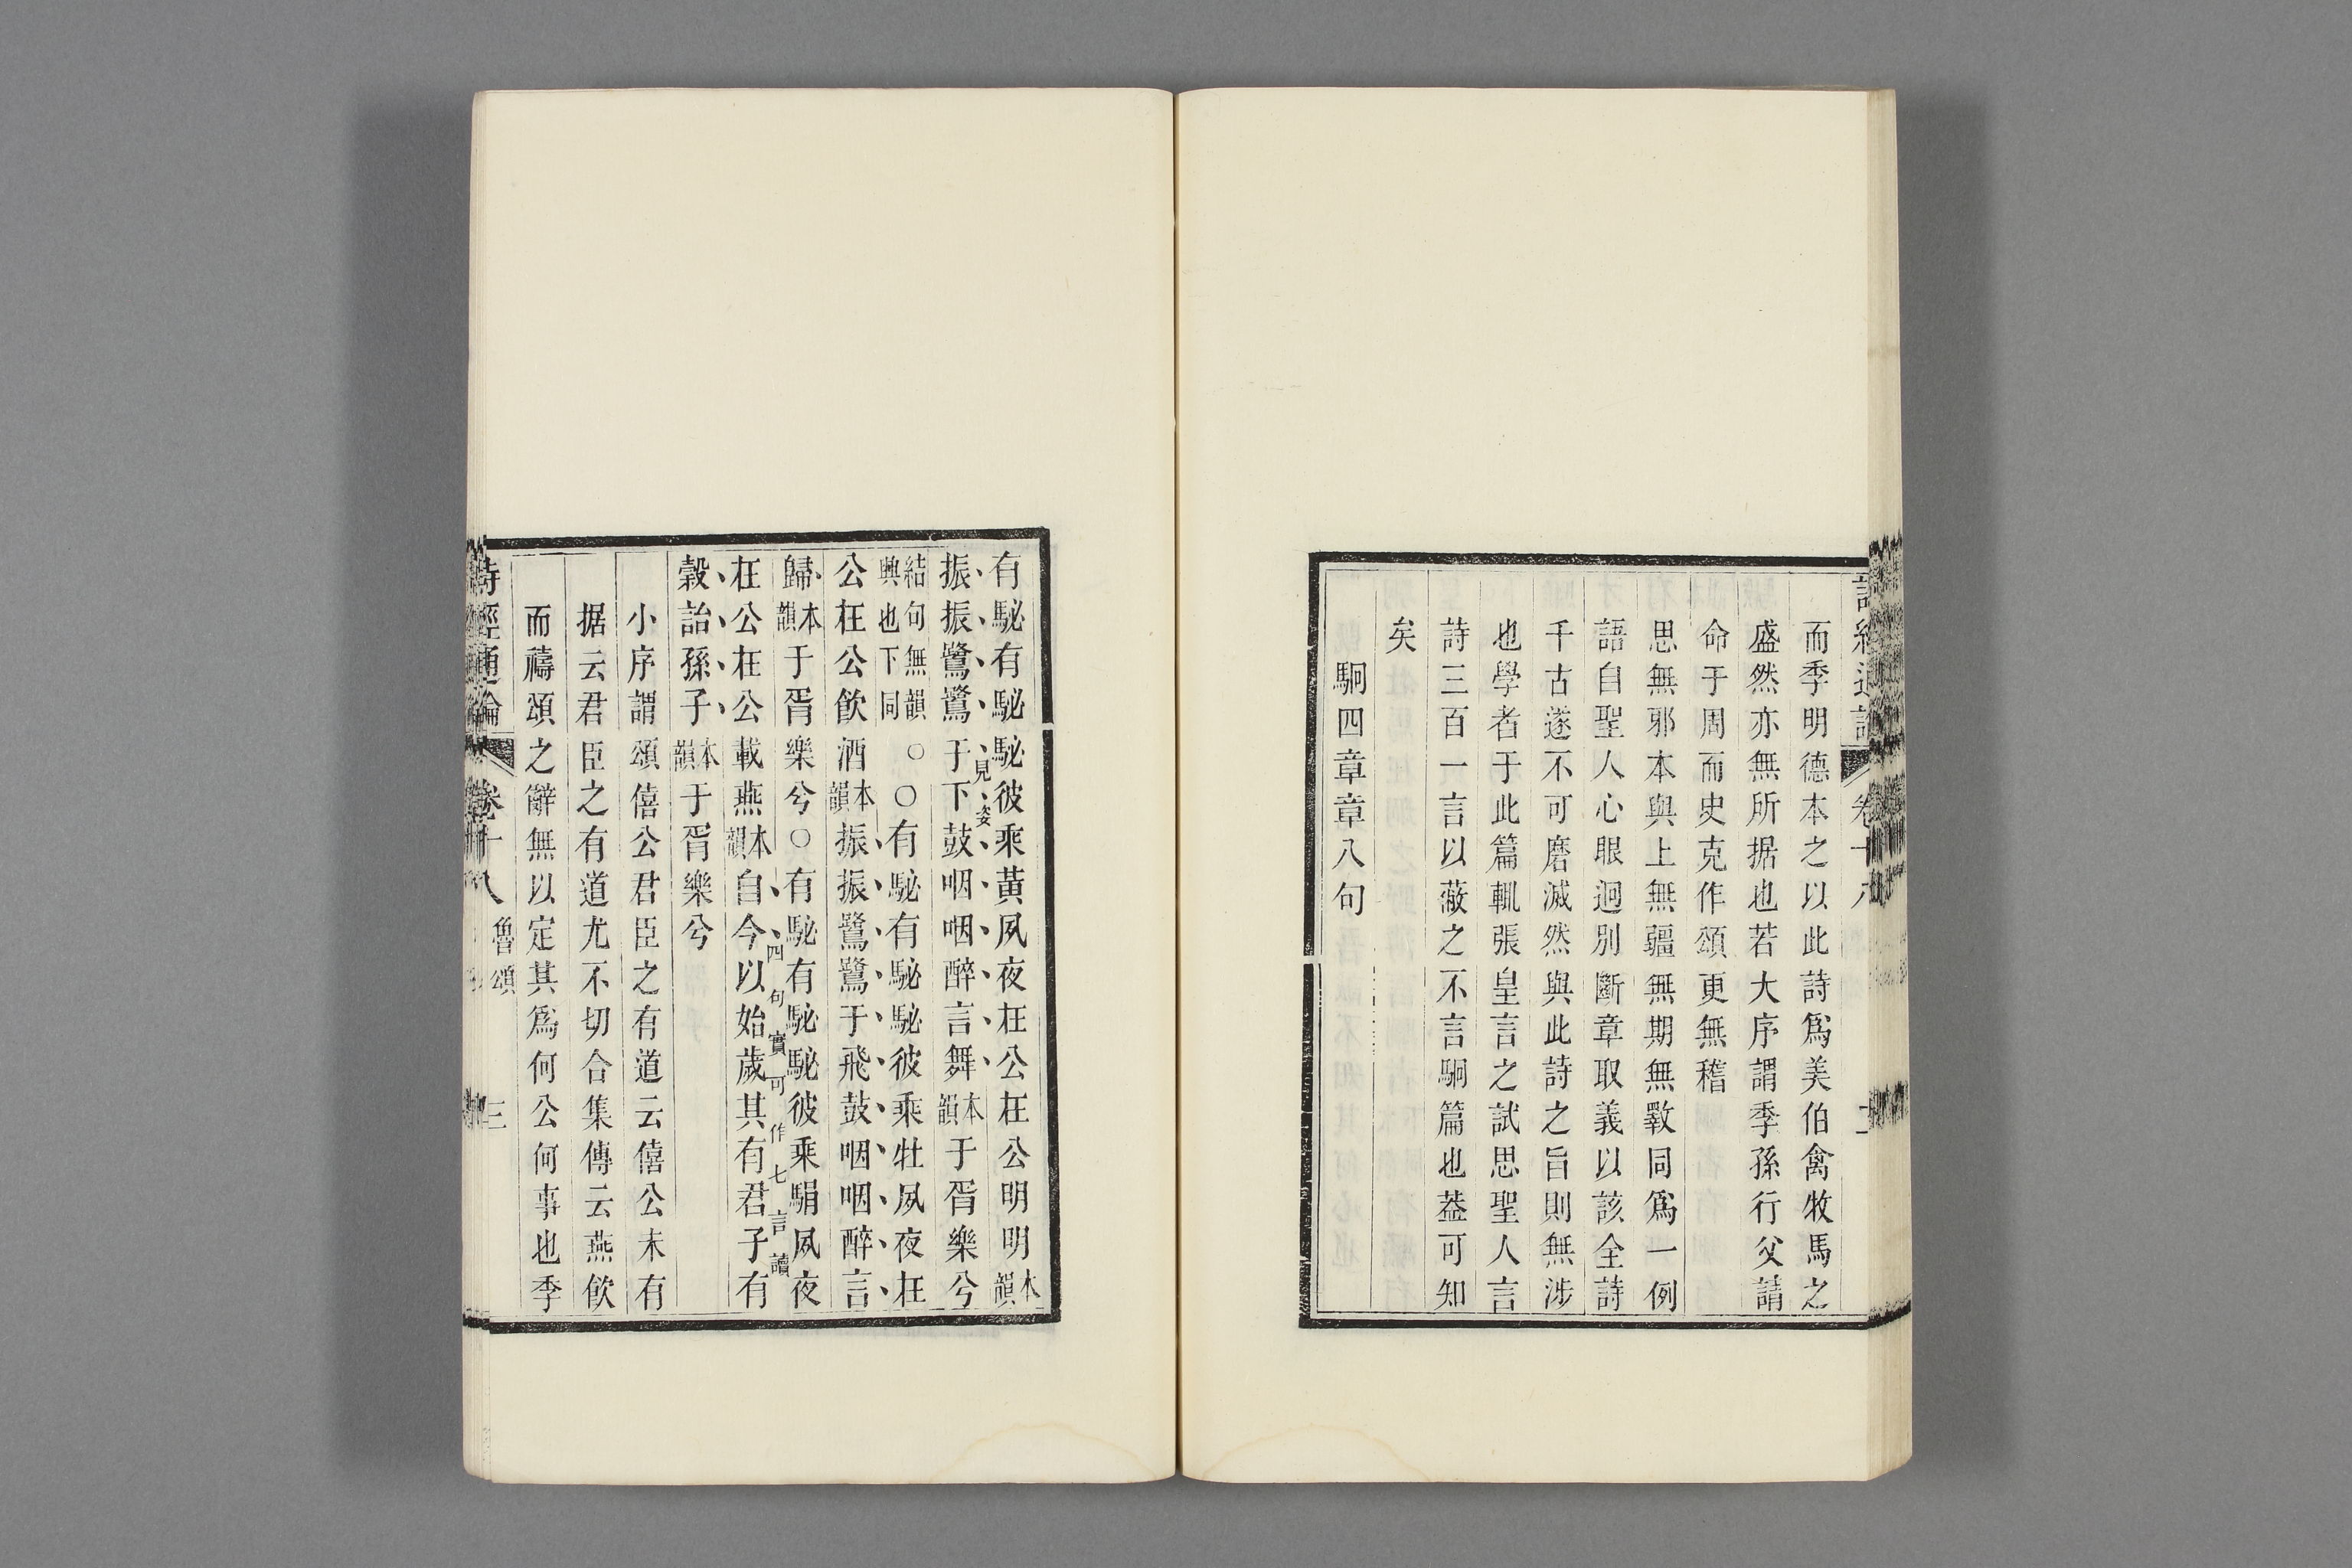 而季明德本之以此詩為美伯禽牧馬之
盛然亦無所据也若大序謂季孫行父請
命于周而史克作頌更無稽
思無邪本與上無疆無期無斁同為一例
語自聖人心眼迥別斷章取義以該全詩
千古遂不可磨滅然與此詩之旨則無涉
也學者于此篇輒張皇言之試思聖人言
詩三百一言以蔽之不言駉篇也葢可知
矣
駉四章章八句
有駜有駜駜彼乘黃夙夜在公在公明明本韻
振振鷺鷺于下鼓咽咽醉言舞本韻于胥樂兮
見姿
結句無韻
興也下同
○○有駜有駜駜彼乘牡夙夜在
公在公飲酒本韻振振鷺鷺于飛鼓咽咽醉言
歸本韻于胥樂兮○有駜有駜駜彼乘駽夙夜
在公在公載燕本韻自今以始歲其有君子有
四句實可作七言讀
穀詒孫子本韻于胥樂兮
小序謂頌僖公君臣之有道云僖公未有
据云君臣之有道尤不切合集傳云燕飲
而禱頌之辭無以定其為何公何事也季
詩經通論 卷十八 魯頌 三